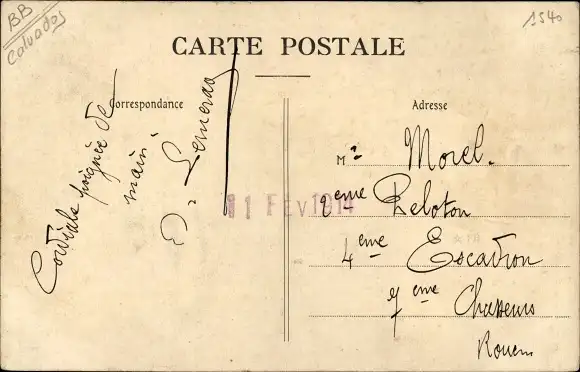 BB
Calvados
1540
CARTE POSTALE
Correspondance
Cordiale poignée de
main
Adresse
M r Morel.
2eme Peloton
4eme Escadron
7eme Chasseurs
Rouen
11 FEV 1914